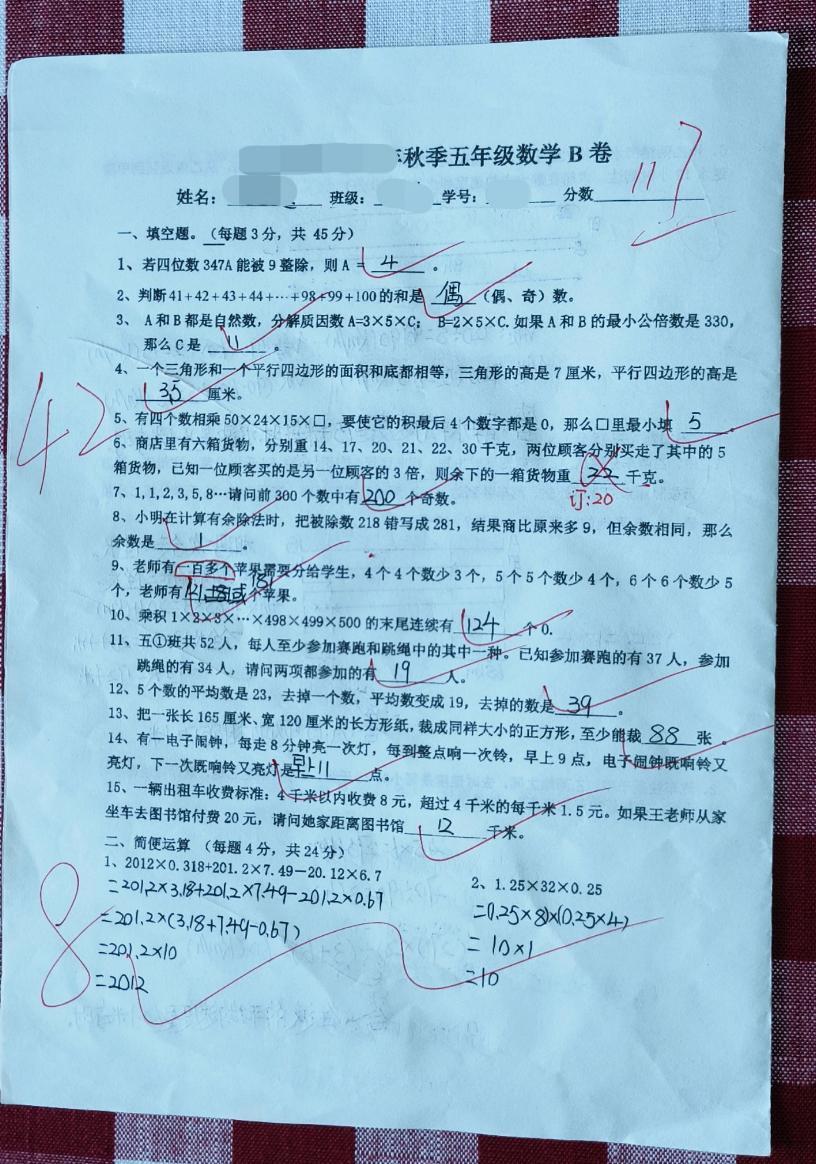 秋季五年级数学 B 卷
姓名： 班级： 学号： 分数 117
一、填空题。（每题 3 分，共 45 分）
1、若四位数 347A 能被 9 整除，则 A = 4 。
2、判断 41+42+43+44+…+98+99+100 的和是 偶 （偶、奇）数。
3、 A 和 B 都是自然数，分解质因数 A=3×5×C； B=2×5×C. 如果 A 和 B 的最小公倍数是 330，
那么 C 是 11 。
4、一个三角形和一个平行四边形的面积和底都相等，三角形的高是 7 厘米，平行四边形的高是
3.5 厘米。
42
5、有四个数相乘 50×24×15×□，要使它的积最后 4 个数字都是 0，那么□里最小填 5 。
6、商店里有六箱货物，分别重 14、17、20、21、22、30 千克，两位顾客分别买走了其中的 5
箱货物，已知一位顾客买的是另一位顾客的 3 倍，则余下的一箱货物重 22 千克。
订:20
7、1,1,2,3,5,8…请问前 300 个数中有 200 个奇数。
8、小明在计算有余除法时，把被除数 218 错写成 281，结果商比原来多 9，但余数相同，那么
余数是 1 。
9、老师有一百多个苹果需要分给学生，4 个 4 个数少 3 个，5 个 5 个数少 4 个，6 个 6 个数少 5
个，老师有 121或 181 个苹果。
10、乘积 1×2×3×…×498×499×500 的末尾连续有 124 个 0.
11、五①班共 52 人，每人至少参加赛跑和跳绳中的其中一种。已知参加赛跑的有 37 人，参加
跳绳的有 34 人，请问两项都参加的有 19 人。
12、5 个数的平均数是 23，去掉一个数，平均数变成 19，去掉的数是 39 。
13、把一张长 165 厘米、宽 120 厘米的长方形纸，裁成同样大小的正方形，至少能裁 88 张 。
14、有一电子闹钟，每走 8 分钟亮一次灯，每到整点响一次铃，早上 9 点，电子闹钟既响铃又
亮灯，下一次既响铃又亮灯是 早上11 点。
15、一辆出租车收费标准：4 千米以内收费 8 元，超过 4 千米的每千米 1.5 元。如果王老师从家
坐车去图书馆付费 20 元，请问她家距离图书馆 12 千米。
二、简便运算 （每题 4 分，共 24 分）
8
1、2012×0.318+201.2×7.49－20.12×6.7
=201.2×3.18+201.2×7.49-201.2×0.67
=201.2×(3.18+7.49-0.67)
=201.2×10
=2012
2、1.25×32×0.25
=(1.25×8)×(0.25×4)
=10×1
=10